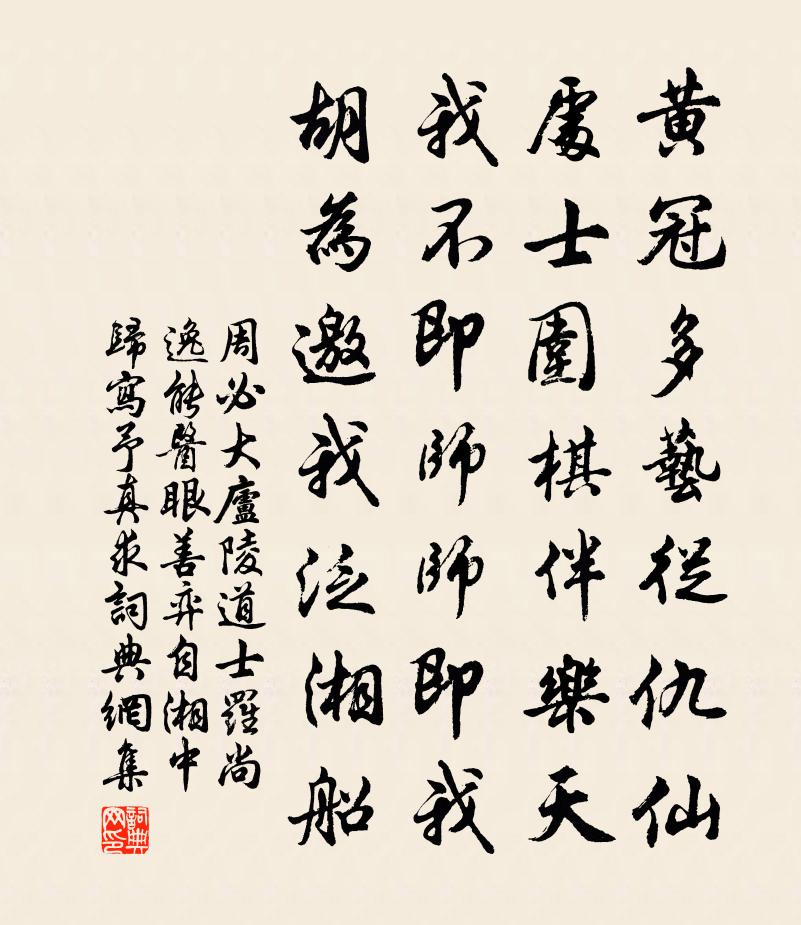 黄冠多藝從仇仙
處士圍棋伴樂天
我不即師師即我
胡為邀我泛湘船
周必大廬陵道士羅尚
逸能醫眼善弈自湘中
歸寫予真求詞典網集
詞典網印